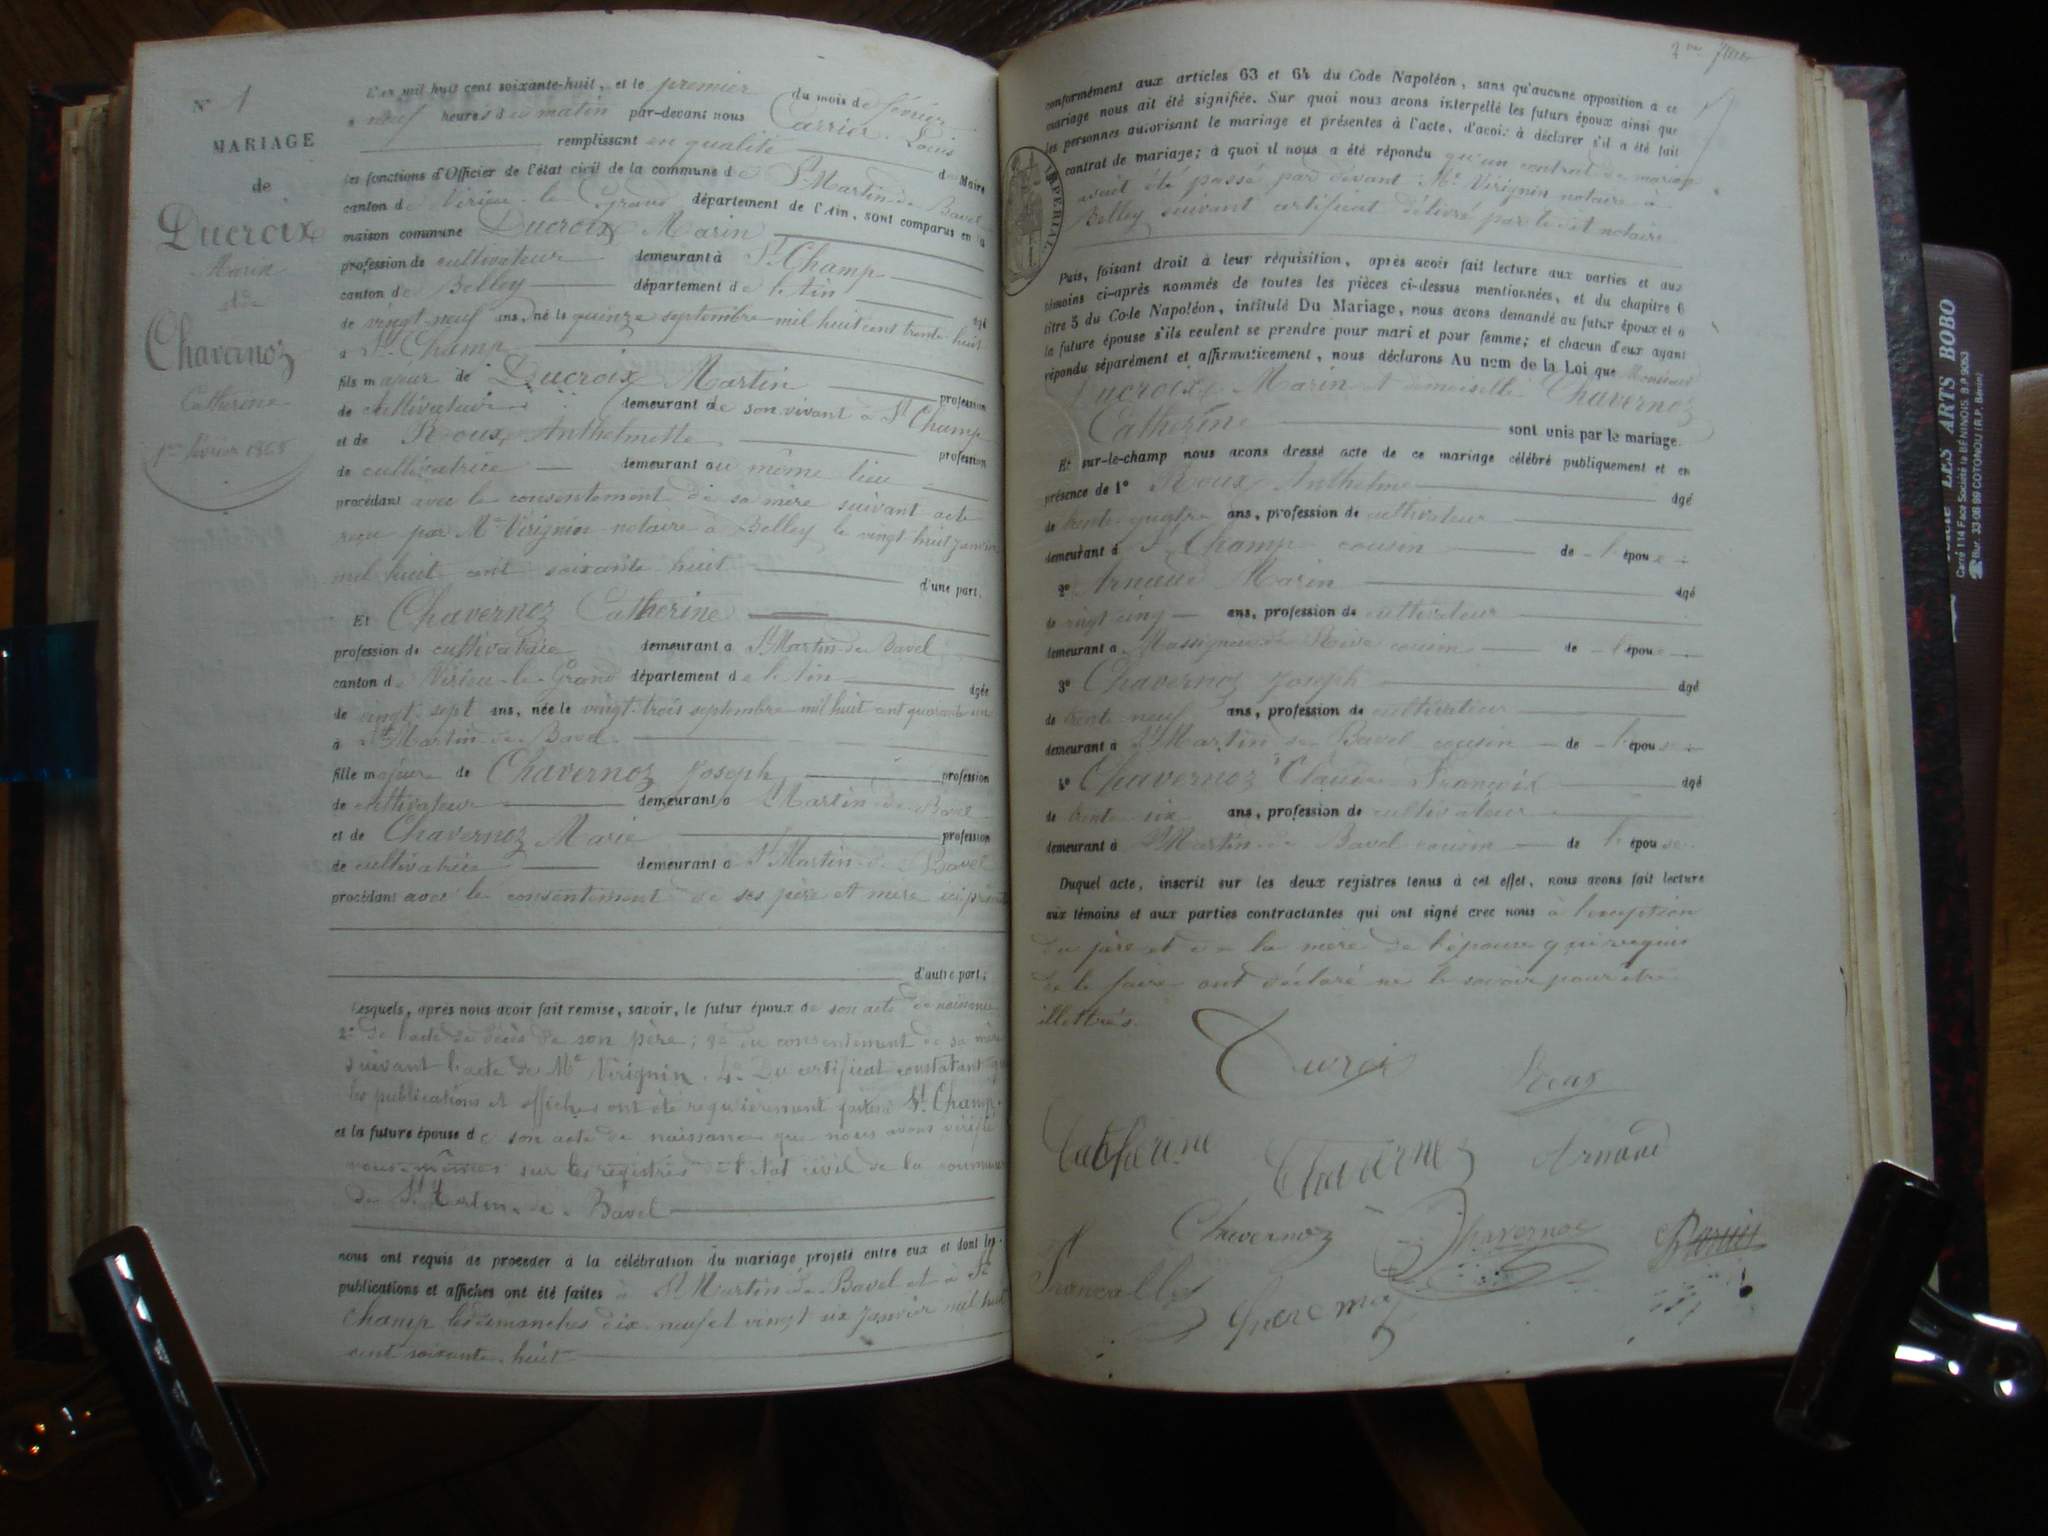 N° 1
MARIAGE
de
Ducroix
Marin
et de
Chavanoz
Catherine
1er février 1868
L'an mil huit cent soixante-huit, et le premier du mois de février
à neuf heures du matin par-devant nous Carrier Louis
remplissant en qualité de Maire
les fonctions d'Officier de l'état civil de la commune de St Martin de Bavel
canton de Virieu-le-Grand département de l'Ain, sont comparus en la
maison commune Ducroix Marin
profession de cultivateur demeurant à St Champ
canton de Belley département de l'Ain âgé
de vingt-neuf ans, né le quinze septembre mil huit cent trente huit
à St Champ
fils majeur de Ducroix Martin profession
de cultivateur demeurant de son vivant à St Champ
et de Roux Anthelmette profession
de cultivatrice demeurant au même lieu
procédant avec le consentement de sa mère suivant acte
reçu par Me Virignin notaire à Belley le vingt huit janvier
mil huit cent soixante huit d'une part,
Et Chavernoz Catherine
profession de cultivatrice demeurant à St Martin de Bavel
canton de Virieu-le-Grand département de l'Ain âgée
de vingt-sept ans, née le vingt-trois septembre mil huit cent quarante un
à St Martin de Bavel
fille majeure de Chavernoz Joseph profession
de cultivateur demeurant à St Martin de Bavel
et de Chavernoz Marie profession
de cultivatrice demeurant à St Martin de Bavel
procédant avec le consentement de ses père et mère ici présents
d'autre part;
Lesquels, après nous avoir fait remise, savoir, le futur époux de son acte de naissance
2° de l'acte de décès de son père; 3° du consentement de sa mère
suivant l'acte de Me Virignin. 4° Du certificat constatant que
les publications et affiches ont été régulièrement faites à St Champ.
et la future épouse de son acte de naissance que nous avons vérifié
nous-mêmes sur les registres de l'état civil de la commune
de St Martin de Bavel
nous ont requis de procéder à la célébration du mariage projeté entre eux et dont les
publications et affiches ont été faites à St Martin de Bavel et à St
Champ les dimanches dix-neuf et vingt six janvier mil huit
cent soixante-huit
conformément aux articles 63 et 64 du Code Napoléon, sans qu'aucune opposition à ce
mariage nous ait été signifiée. Sur quoi nous avons interpellé les futurs époux ainsi que
les personnes autorisant le mariage et présentes à l'acte, d'avoir à déclarer s'il a été fait
contrat de mariage; à quoi il nous a été répondu qu'un contrat de mariage
avait été passé par devant Me Virignin notaire à
Belley suivant certificat délivré par le dit notaire
IMPERIAL
Puis, faisant droit à leur réquisition, après avoir fait lecture aux parties et aux
témoins ci-après nommés de toutes les pièces ci-dessus mentionnées, et du chapitre 6
titre 5 du Code Napoléon, intitulé Du Mariage, nous avons demandé au futur époux et à
la future épouse s'ils veulent se prendre pour mari et pour femme; et chacun d'eux ayant
répondu séparément et affirmativement, nous déclarons Au nom de la Loi que Monsieur
Ducroix Marin et demoiselle Chavernoz
Catherine sont unis par le mariage.
Et sur-le-champ nous avons dressé acte de ce mariage célébré publiquement et en
présence de 1° Roux Anthelme âgé
de trente quatre ans, profession de cultivateur
demeurant à St Champ cousin de l'époux
2° Arnaud Marin âgé
de vingt cinq ans, profession de cultivateur
demeurant à Massignieu de Rive cousin de l'époux
3° Chavernoz Joseph âgé
de trente neuf ans, profession de cultivateur
demeurant à St Martin de Bavel cousin de l'épouse
4° Chavernoz Claude François âgé
de trente six ans, profession de cultivateur
demeurant à St Martin de Bavel cousin de l'épouse
Duquel acte, inscrit sur les deux registres tenus à cet effet, nous avons fait lecture
aux témoins et aux parties contractantes qui ont signé avec nous à l'exception
du père et de la mère de l'épouse qui requis
de le faire ont déclaré ne le savoir pour être
illettrés.
Catherine Chavernoz Arnaud
Chavernoz Chavernoz
LES ARTS BOBO
Carré 114 Face Société la BÉNINOIS. B.P.9053
Bur. 33 08 99 COTONOU (R.P. Bénin)